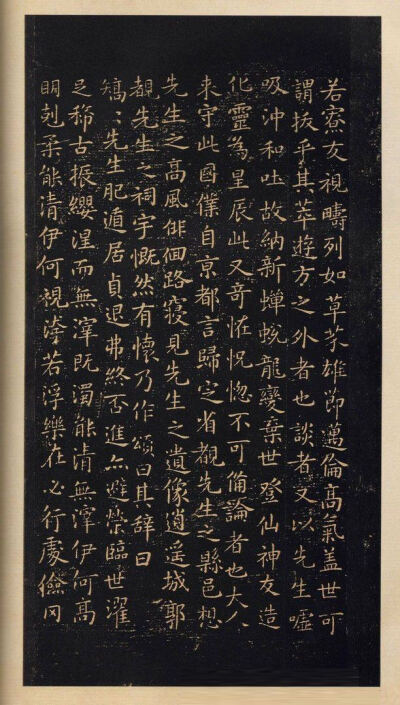 若寮友視疇列如草芥雄節邁倫高氣蓋世可
謂拔乎其萃遊方之外者也談者又以先生噓
吸沖和吐故納新蟬蛻龍變棄世登仙神友造
化靈為星辰此又奇怪怳惚不可備論者也大人
来守此國僕自京都言歸定省覩先生之縣邑想
先生之高風徘徊路寢見先生之遺像逍遥城郭
覩先生之祠宇慨然有懷乃作頌曰其辭曰
矯〻先生肥遁居貞退弗終否進亦避榮臨世濯
足稀古振纓涅而無滓既濁能清無滓伊何高
明剋柔能清伊何視洿若浮樂在必行處儉罔